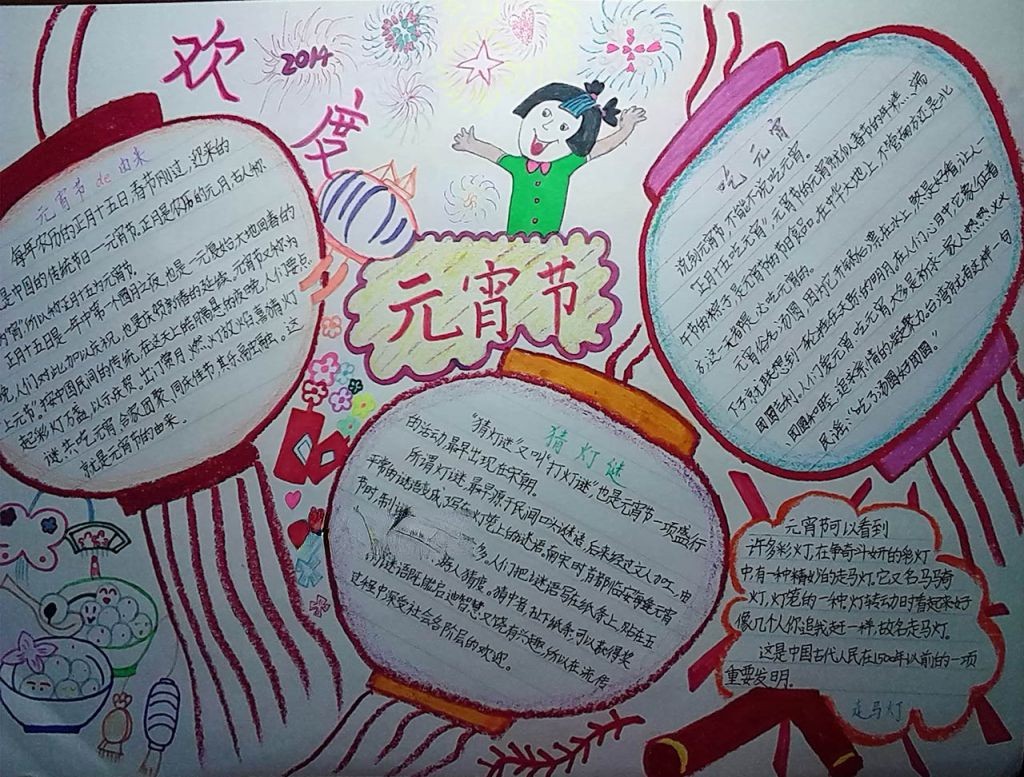 欢
度
2014
元宵节
元宵节de由来
每年农历的正月十五日,春节刚过,迎来的
是中国的传统节日——元宵节。正月是农历的元月,古人称
"宵"所以称正月十五为元宵节。
正月十五日是一年中第一个月圆之夜,也是一元复始大地回春的
晚,人们对此加以庆祝,也是庆贺新春的延续。元宵节又称为
上元节"按中国民间的传统,在这天上皓月高悬的夜晚,人们要点
起彩灯万盏,以示庆贺。出门赏月、燃灯放焰、喜猜灯
谜、共吃元宵、合家团聚、同庆佳节,其乐融融。这
就是元宵节的由来。
吃元宵
说到元宵节,不能不说吃元宵。
"正月十五吃元宵",元宵节的元宵就似春节的年糕、端
午节的粽子,是元宵节的节日食品。在中华大地上,不管南方还是北
方,这一天都是要吃元宵的。
元宵俗名:汤圆,因灯它开锅后漂在水上,煞是好看,让人一
下子就联想到一轮挂在天际的明月。在人们心目中,它象征着
团圆吉利。人们爱元宵、吃元宵,大多是祈求一家人燃燃火火
团圆和睦,追求亲情的凝聚力。台湾就有这样一句
民谣:"吃了汤圆好团圆。"
猜灯谜
"猜灯谜"又叫"打灯谜"也是元宵节一项盛行
的活动,最早出现在宋朝。
所谓灯谜,最早源于民间口头谜语,后来经过文人加工,由
平常的谜语变成了写在灯笼上的谜语。南宋时,首都临安每逢元宵
节时制
多。人们把谜语写在纸条上,贴在五
人猜度。猜中者,扯下纸条,可以获得奖
谜语既能启迪智慧又饶有兴趣,所以在流传
过程中深受社会各阶层的欢迎。
元宵节可以看到
许多彩灯,在争奇斗妍的彩灯
中,有一种精妙的走马灯。它又名马骑
灯,灯笼的一种,灯转动时看起来好
像几个人你追我赶一样,故名走马灯。
这是中国古代人民在1500年以前的一项
重要发明。
走马灯